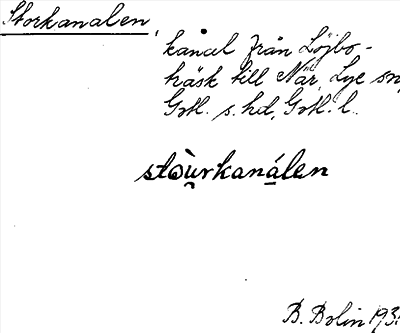 Storkanalen,
kanal från Löjbo-
häsk till När, Lye sn,
Gotl. s. hd, Gotl. l.
stòu̯rkaná̱len
B. Bolin 193